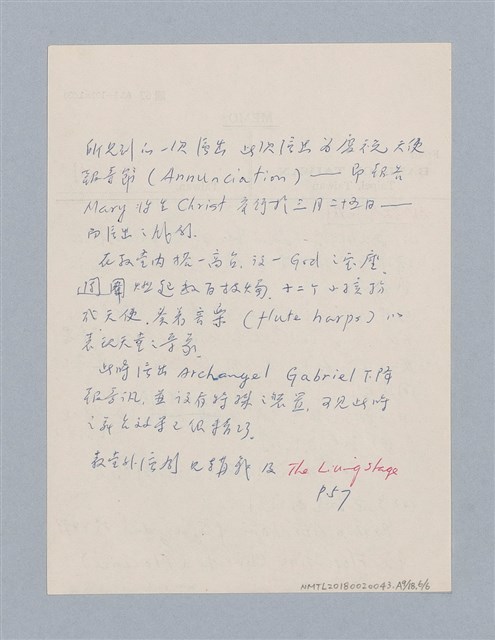 所見到的一次演出 此次演出為慶祝天使
報喜節 (Annunciation) —— 即報告
Mary 將生 Christ 舉行於三月二十五日——
而演出之戲劇.
在教堂內搭一高台, 設一 God 之寶座,
周圍燃起數百枝燭, 十二个小孩扮
成天使, 奏着音樂 (flute harps) 以
表現天堂之景象.
此時演出 Archangel Gabriel 下降
報喜訊, 並設有特殊之裝置, 可見此時
之舞台效果已很精巧.
教堂外演劇 見 及 The Living Stage
P.57
NMTL20180020043.A9/18,6/6